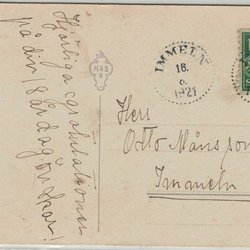 Hjärtliga gratulationer
på din 18 årsdag önskar!
M45
8
IMMELN
16.
6.
1921
Herr
Otto Månsson
Immeln